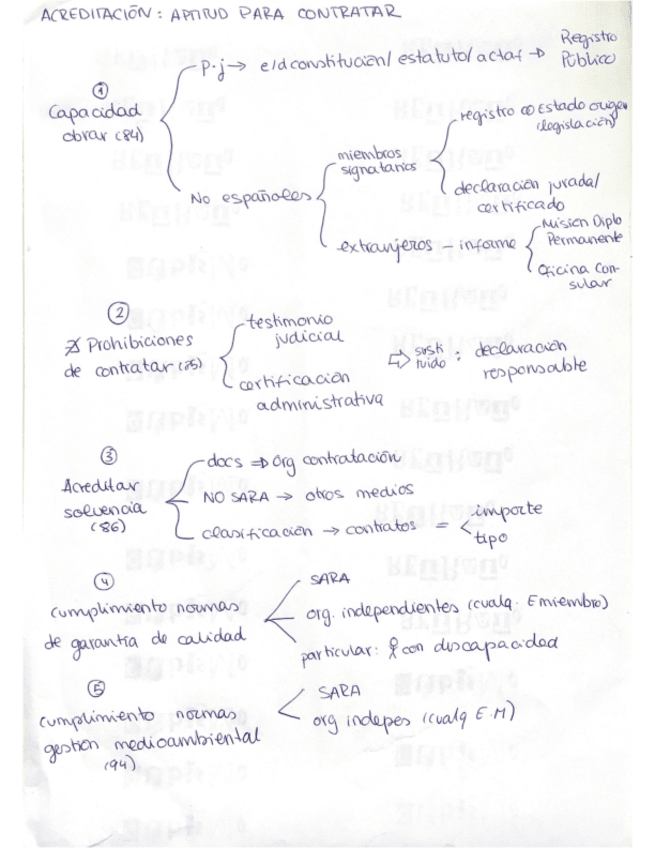 ACREDITACIÓN: APTITUD PARA CONTRATAR
① Capacidad
obrar (84)
p.j → e/d constitución/ estatuto/ actaf → Registro
Público
No españoles
miembros
signatarios
registro ∞ Estado origen
(legislación)
declaración jurada/
certificado
extranjeros – informe
Misión Diplo
Permanente
Oficina Con-
sular
② ∄ Prohibiciones
de contratar (85)
testimonio
judicial
certificación
administrativa
⇨ susti
tuido : declaración
responsable
③ Acreditar
solvencia
(86)
docs ⇒ Org contratación
NO SARA → otros medios
clasificación → contratos = < importe
tipo
④ cumplimiento normas
de garantía de calidad
SARA
org. independientes (cualq. Emiembro)
particular: con discapacidad
⑤ cumplimiento normas
gestión medioambiental
(94)
SARA
org indepes (cualq E.M)